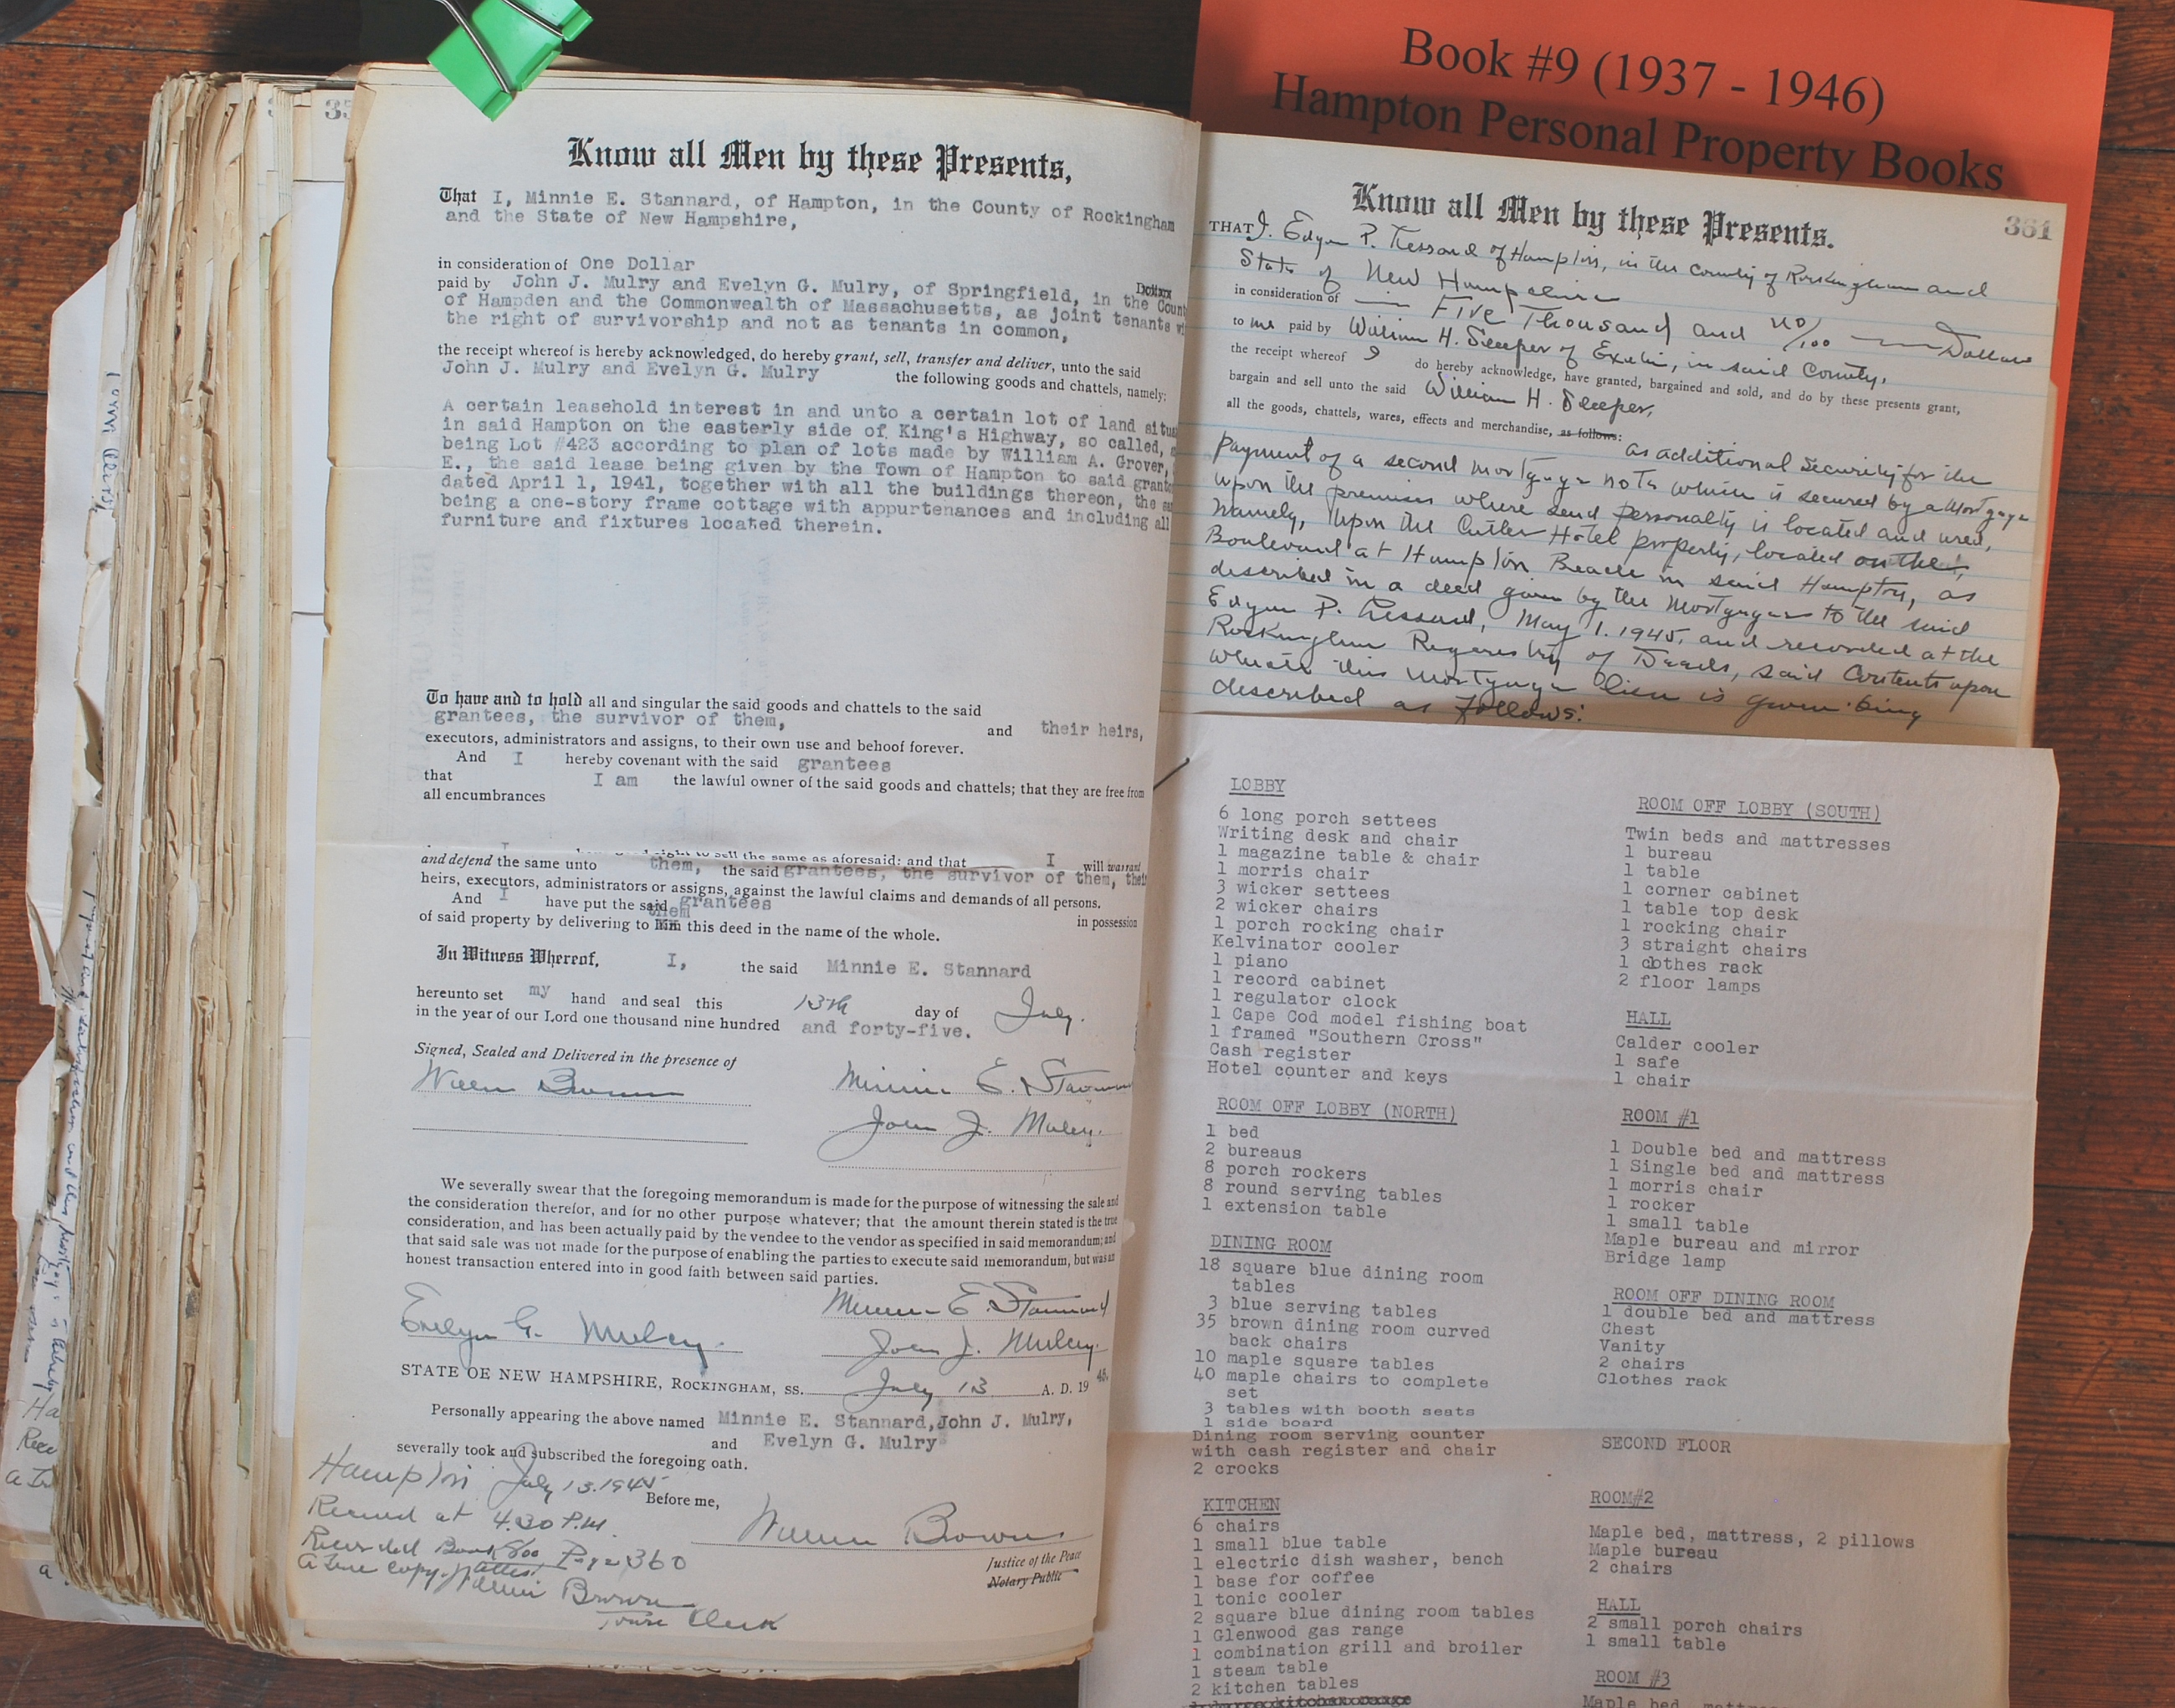 Book #9 (1937 - 1946)
Hampton Personal Property Books
Know all Men by these Presents,
That I, Minnie E. Stannard, of Hampton, in the County of Rockingham
and the State of New Hampshire,
in consideration of One Dollar
paid by John J. Mulry and Evelyn G. Mulry, of Springfield, in the Count
of Hampden and the Commonwealth of Massachusetts, as joint tenants wi
the right of survivorship and not as tenants in common,
the receipt whereof is hereby acknowledged, do hereby grant, sell, transfer and deliver, unto the said
John J. Mulry and Evelyn G. Mulry the following goods and chattels, namely:
A certain leasehold interest in and unto a certain lot of land situa
in said Hampton on the easterly side of King's Highway, so called,
being Lot #423 according to plan of lots made by William A. Grover,
E., the said lease being given by the Town of Hampton to said grant
dated April 1, 1941, together with all the buildings thereon, the sa
being a one-story frame cottage with appurtenances and including all
furniture and fixtures located therein.
To have and to hold all and singular the said goods and chattels to the said
grantees, the survivor of them, and their heirs,
executors, administrators and assigns, to their own use and behoof forever.
And I hereby covenant with the said grantees
that I am the lawful owner of the said goods and chattels; that they are free from
all encumbrances
right to sell the same as aforesaid: and that I will warrant
and defend the same unto them, the said grantees, the survivor of them, thei
heirs, executors, administrators or assigns, against the lawful claims and demands of all persons.
And I have put the said grantees in possession
of said property by delivering to them this deed in the name of the whole.
In Witness Whereof, I, the said Minnie E. Stannard
hereunto set my hand and seal this 13th day of July.
in the year of our Lord one thousand nine hundred and forty-five.
Signed, Sealed and Delivered in the presence of
Minnie E. Stannard
John J. Mulry.
We severally swear that the foregoing memorandum is made for the purpose of witnessing the sale and
the consideration therefor, and for no other purpose whatever; that the amount therein stated is the true
consideration, and has been actually paid by the vendee to the vendor as specified in said memorandum; and
that said sale was not made for the purpose of enabling the parties to execute said memorandum, but was an
honest transaction entered into in good faith between said parties.
Minnie E. Stannard
Evelyn G. Mulry.
John J. Mulry.
STATE OE NEW HAMPSHIRE, ROCKINGHAM, SS. July 13 A. D. 19 45.
Personally appearing the above named Minnie E. Stannard, John J. Mulry,
and Evelyn G. Mulry
severally took and subscribed the foregoing oath.
Hampton July 13. 1945
Before me,
Received at 4.30 P.M.
Recorded Book 800 Page 360
A true copy. Attest
Brown
Town Clerk
Brown
Justice of the Peace
Notary Public
Know all Men by these Presents.
361
THAT I. Edgar P. Lessard of Hampton, in the County of Rockingham and
State of New Hampshire
in consideration of Five Thousand and no/100 Dollars
to me paid by William H. Sleeper of Exeter, in said County,
the receipt whereof I do hereby acknowledge, have granted, bargained and sold, and do by these presents grant,
bargain and sell unto the said William H. Sleeper,
all the goods, chattels, wares, effects and merchandise, as follows: as additional security for the
payment of a second mortgage note which is secured by a Mortgage
upon the premises where said personalty is located and used,
namely, upon the Cutler Hotel property, located on the
Boulevard at Hampton Beach in said Hampton, as
described in a deed given by the Mortgagee to the said
Edgar P. Lessard, May 1. 1945. and recorded at the
Rockingham Registry of Deeds, said Contents upon
which this mortgage lien is given being
described as follows:
LOBBY
6 long porch settees
Writing desk and chair
1 magazine table & chair
1 morris chair
3 wicker settees
2 wicker chairs
1 porch rocking chair
Kelvinator cooler
1 piano
1 record cabinet
1 regulator clock
1 Cape Cod model fishing boat
1 framed "Southern Cross"
Cash register
Hotel counter and keys
ROOM OFF LOBBY (NORTH)
1 bed
2 bureaus
8 porch rockers
8 round serving tables
1 extension table
DINING ROOM
18 square blue dining room
tables
3 blue serving tables
35 brown dining room curved
back chairs
10 maple square tables
40 maple chairs to complete
set
3 tables with booth seats
1 side board
Dining room serving counter
with cash register and chair
2 crocks
KITCHEN
6 chairs
1 small blue table
1 electric dish washer, bench
1 base for coffee
1 tonic cooler
2 square blue dining room tables
1 Glenwood gas range
1 combination grill and broiler
1 steam table
2 kitchen tables
ROOM OFF LOBBY (SOUTH)
Twin beds and mattresses
1 bureau
1 table
1 corner cabinet
1 table top desk
1 rocking chair
3 straight chairs
1 clothes rack
2 floor lamps
HALL
Calder cooler
1 safe
1 chair
ROOM #1
1 Double bed and mattress
1 Single bed and mattress
1 morris chair
1 rocker
1 small table
Maple bureau and mirror
Bridge lamp
ROOM OFF DINING ROOM
1 double bed and mattress
Chest
Vanity
2 chairs
Clothes rack
SECOND FLOOR
ROOM#2
Maple bed, mattress, 2 pillows
Maple bureau
2 chairs
HALL
2 small porch chairs
1 small table
ROOM #3
Maple bed